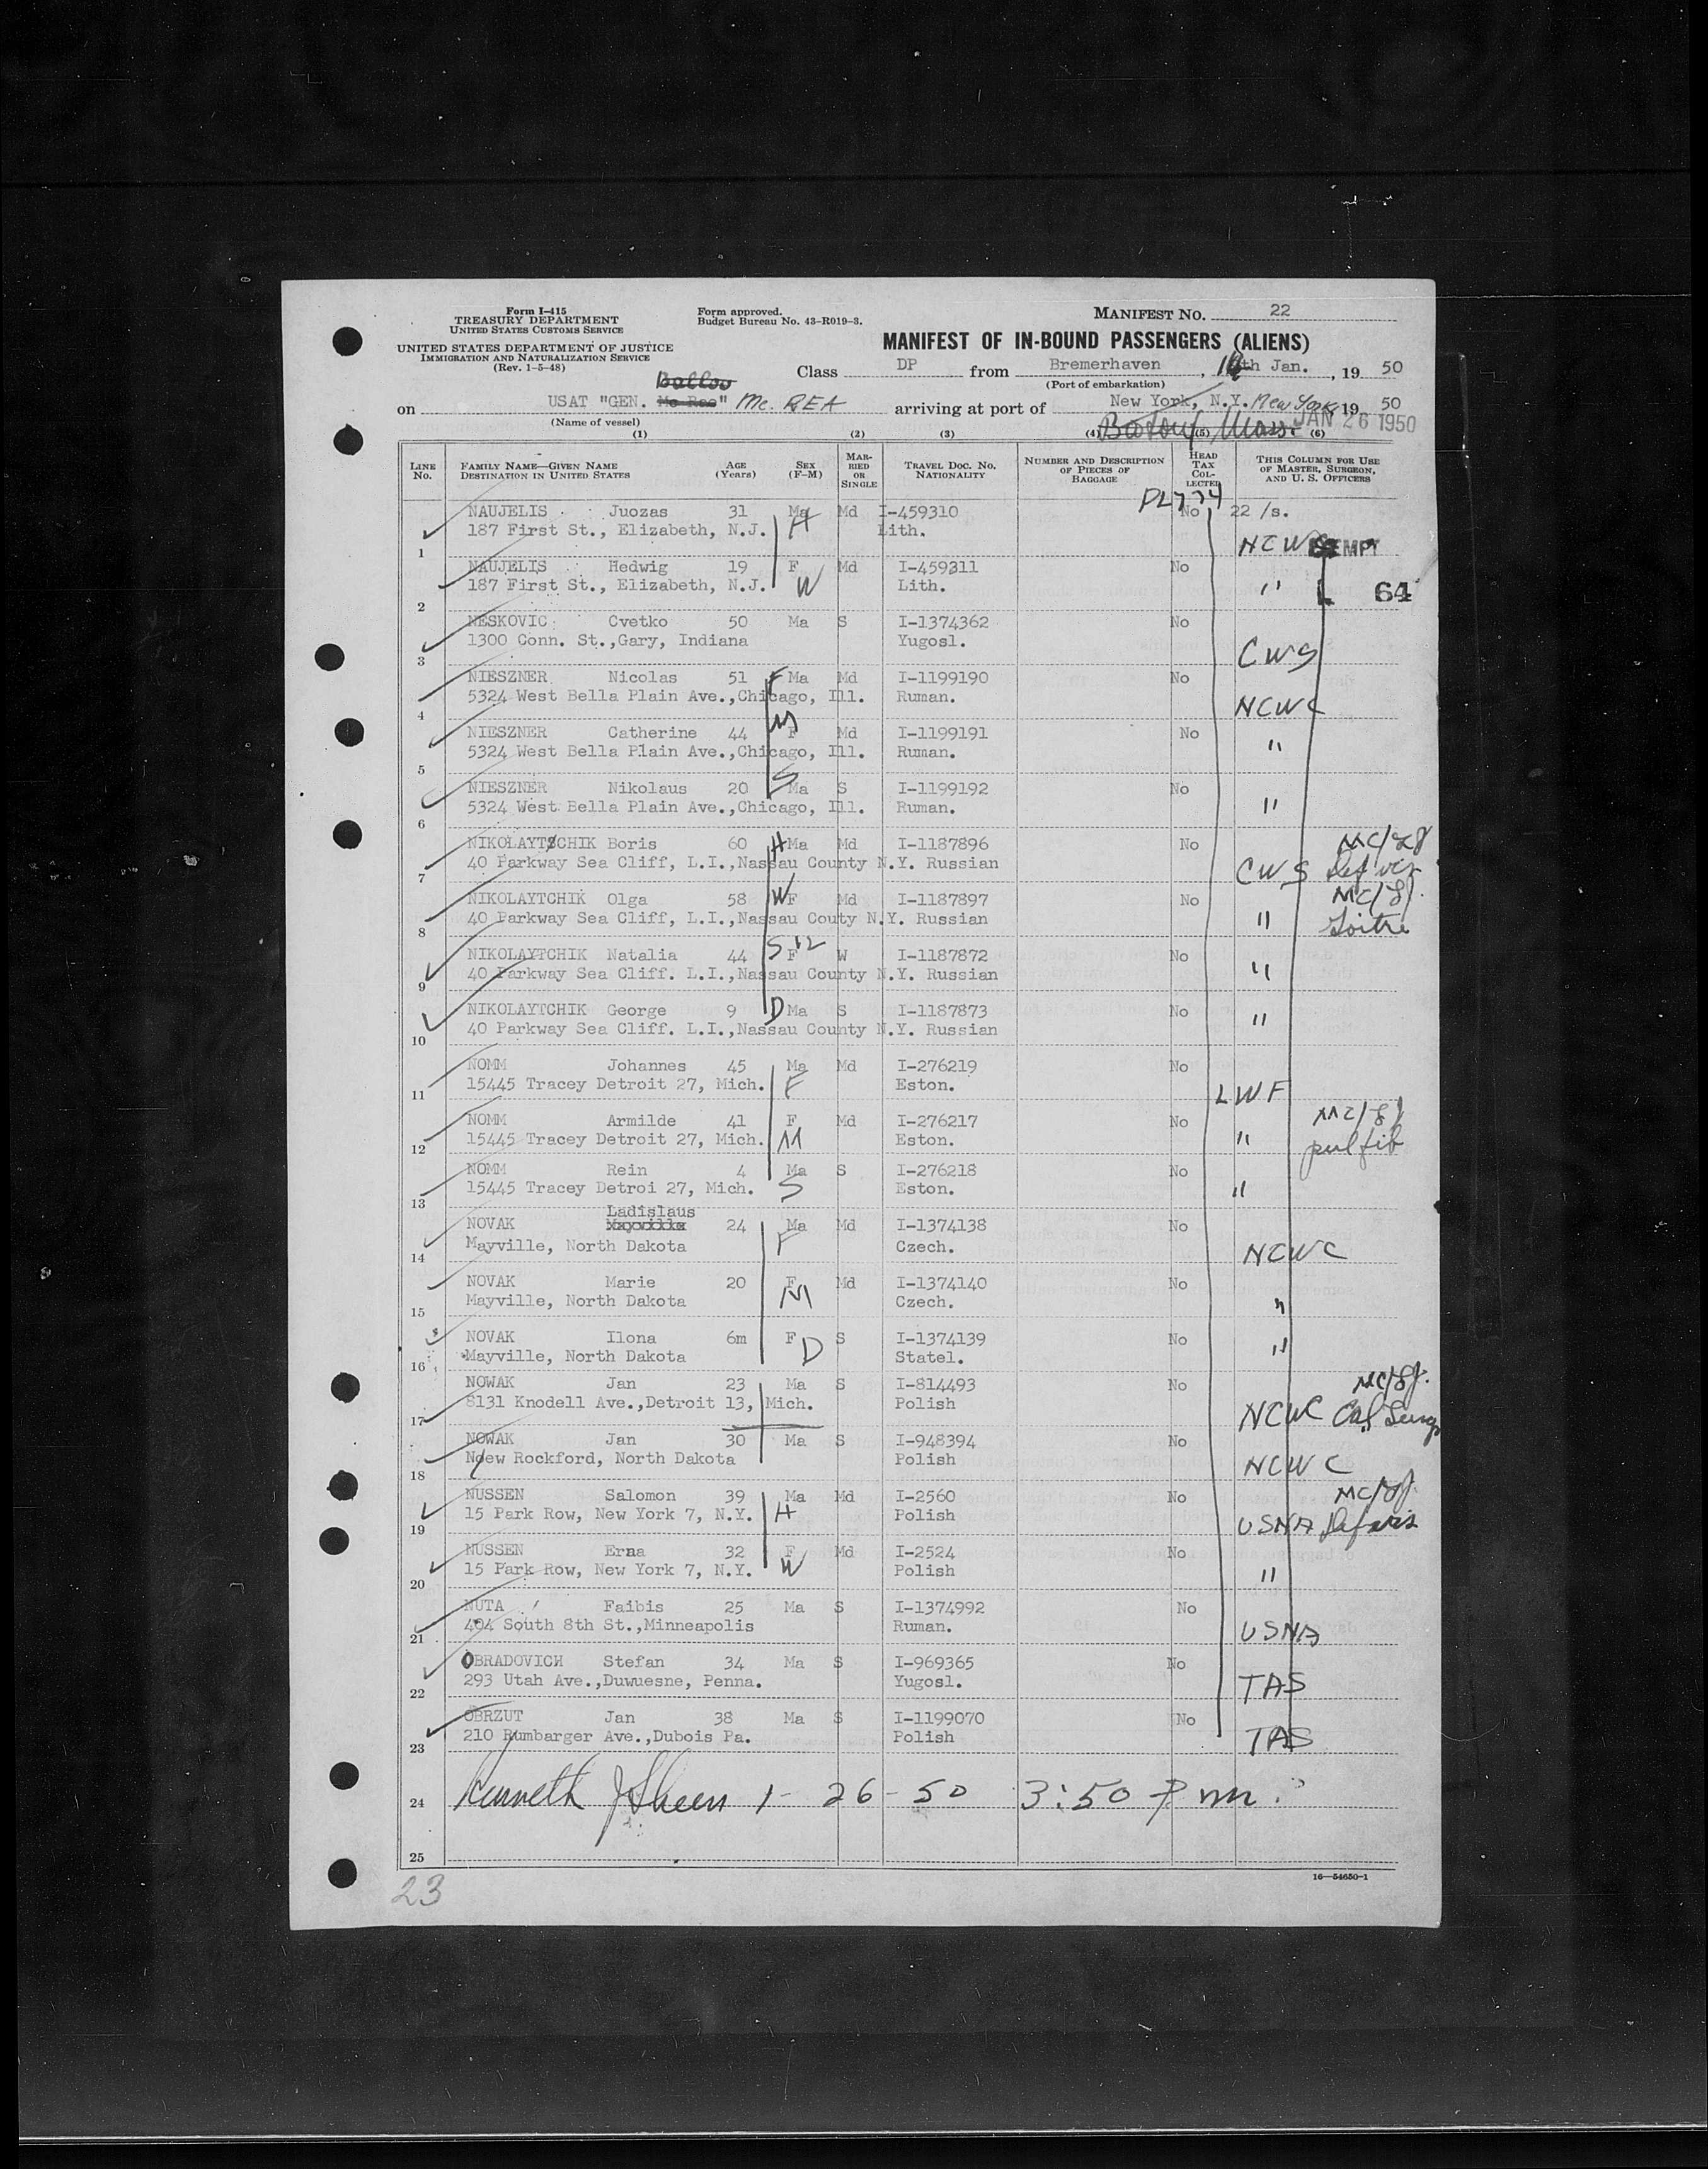 Form I-415
TREASURY DEPARTMENT
UNITED STATES CUSTOMS SERVICE
UNITED STATES DEPARTMENT OF JUSTICE
IMMIGRATION AND NATURALIZATION SERVICE
(Rev. 1-5-48)
Form approved.
Budget Bureau No. 43-R019-3.
MANIFEST NO. 22
MANIFEST OF IN-BOUND PASSENGERS (ALIENS)
Class DP from Bremerhaven, th Jan., 19 50
(Port of embarkation)
Ballou
on USAT "GEN. Mc Rae" Mc. REA arriving at port of New York, N.Y. New York, 19 50
(Name of vessel)
Boston, Mass. JAN 26 1950
(1) (2) (3) (4) (5) (6)
LINE No. FAMILY NAME—GIVEN NAME DESTINATION IN UNITED STATES AGE (Years) SEX (F-M) MARRIED OR SINGLE TRAVEL DOC. NO. NATIONALITY NUMBER AND DESCRIPTION OF PIECES OF BAGGAGE HEAD TAX COLLECTED THIS COLUMN FOR USE OF MASTER, SURGEON, AND U. S. OFFICERS
PL774
NAUJELIS Juozas 31 Ma Md I-459310 No 22 /s.
187 First St., Elizabeth, N.J. H Lith.
1 NCWC EXEMPT
NAUJELIS Hedwig 19 F Md I-459311 No
187 First St., Elizabeth, N.J. W Lith. " L 64
2
NESKOVIC Cvetko 50 Ma S I-1374362 No
1300 Conn. St.,Gary, Indiana Yugosl.
3 CWS
NIESZNER Nicolas 51 F Ma Md I-1199190 No
5324 West Bella Plain Ave.,Chicago, Ill. Ruman.
4 NCWC
NIESZNER Catherine 44 M F Md I-1199191 No
5324 West Bella Plain Ave.,Chicago, Ill. Ruman. "
5
NIESZNER Nikolaus 20 S Ma S I-1199192 No
5324 West Bella Plain Ave.,Chicago, Ill. Ruman. "
6
NIKOLAYTSCHIK Boris 60 H Ma Md I-1187896 No
40 Parkway Sea Cliff, L.I.,Nassau County N.Y. Russian
7 CWS
NIKOLAYTCHIK Olga 58 W F Md I-1187897 No
40 Parkway Sea Cliff, L.I.,Nassau Couty N.Y. Russian " Goitre
8
NIKOLAYTCHIK Natalia 44 F W I-1187872 No
40 Parkway Sea Cliff. L.I.,Nassau County N.Y. Russian "
9
NIKOLAYTCHIK George 9 D Ma S I-1187873 No
40 Parkway Sea Cliff. L.I.,Nassau County N.Y. Russian "
10
NOMM Johannes 45 Ma Md I-276219 No
15445 Tracey Detroit 27, Mich. F Eston.
11 LWF
NOMM Armilde 41 F Md I-276217 No
15445 Tracey Detroit 27, Mich. M Eston. " pul fib
12
NOMM Rein 4 Ma S I-276218 No
15445 Tracey Detroi 27, Mich. S Eston. "
13
Ladislaus
NOVAK Mayville 24 Ma Md I-1374138 No
Mayville, North Dakota F Czech.
14 NCWC
NOVAK Marie 20 F Md I-1374140 No
Mayville, North Dakota M Czech. "
15
NOVAK Ilona 6m F D S I-1374139 No
Mayville, North Dakota Statel. "
16
NOWAK Jan 23 Ma S I-814493 No
8131 Knodell Ave.,Detroit 13, Mich. Polish
17 NCWC
NOWAK Jan 30 Ma S I-948394 No
Ndew Rockford, North Dakota Polish
18 NCWC
NUSSEN Salomon 39 Ma Md I-2560 No
15 Park Row, New York 7, N.Y. H Polish
19 USNA
NUSSEN Erna 32 F Md I-2524 No
15 Park Row, New York 7, N.Y. W Polish "
20
NUTA Faibis 25 Ma S I-1374992 No
404 South 8th St.,Minneapolis Ruman.
21 USNA
OBRADOVICH Stefan 34 Ma S I-969365 No
293 Utah Ave.,Duwuesne, Penna. Yugosl.
22 TAS
OBRZUT Jan 38 Ma S I-1199070 No
210 Rumbarger Ave.,Dubois Pa. Polish
23 TAS
24 Kenneth J Skeen 1-26-50 3:50 Pm.
25
16—54650-1
23